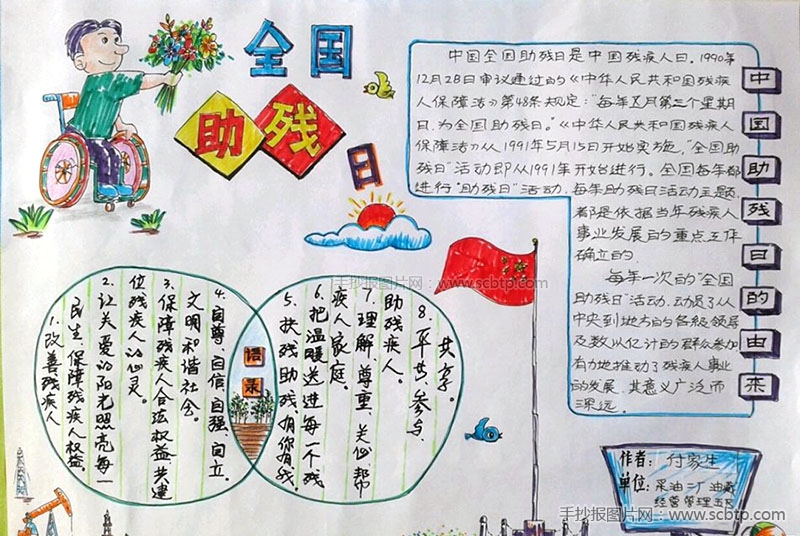 全国
助残
日
中国助残日的由来
中国全国助残日是中国残疾人日。1990年
12月28日审议通过的《中华人民共和国残疾
人保障法》第48条规定："每年五月第三个星期
日，为全国助残日。"《中华人民共和国残疾人
保障法》从1991年5月15日开始实施，"全国助
残日"活动即从1991年开始进行。全国每年都
进行"助残日"活动，每年助残日活动主题
都是依据当年残疾人
事业发展的重点工作
确立的。
每年一次的"全国
助残日"活动，动员了从
中央到地方的各级领导
及数以亿计的群众参加
有力地推动了残疾人事业
的发展，其意义广泛而
深远。
语录
1.改善残疾人
民生，保障残疾人权益。
2.让关爱的阳光照亮每一
位残疾人的心灵。
3.保障残疾人合法权益，共建
文明和谐社会。
4.自尊 自信 自强 自立。
5.扶残助残，有你有我。
6.把温暖送进每一个残
疾人家庭。
7.理解、尊重、关心、帮
助残疾人。
8.平共、参与、
共享。
作者：付家生
单位：采油二厂油藏
经营管理五区
手抄报图片网：www.scbtp.com
手抄报图片网：www.scbtp.com